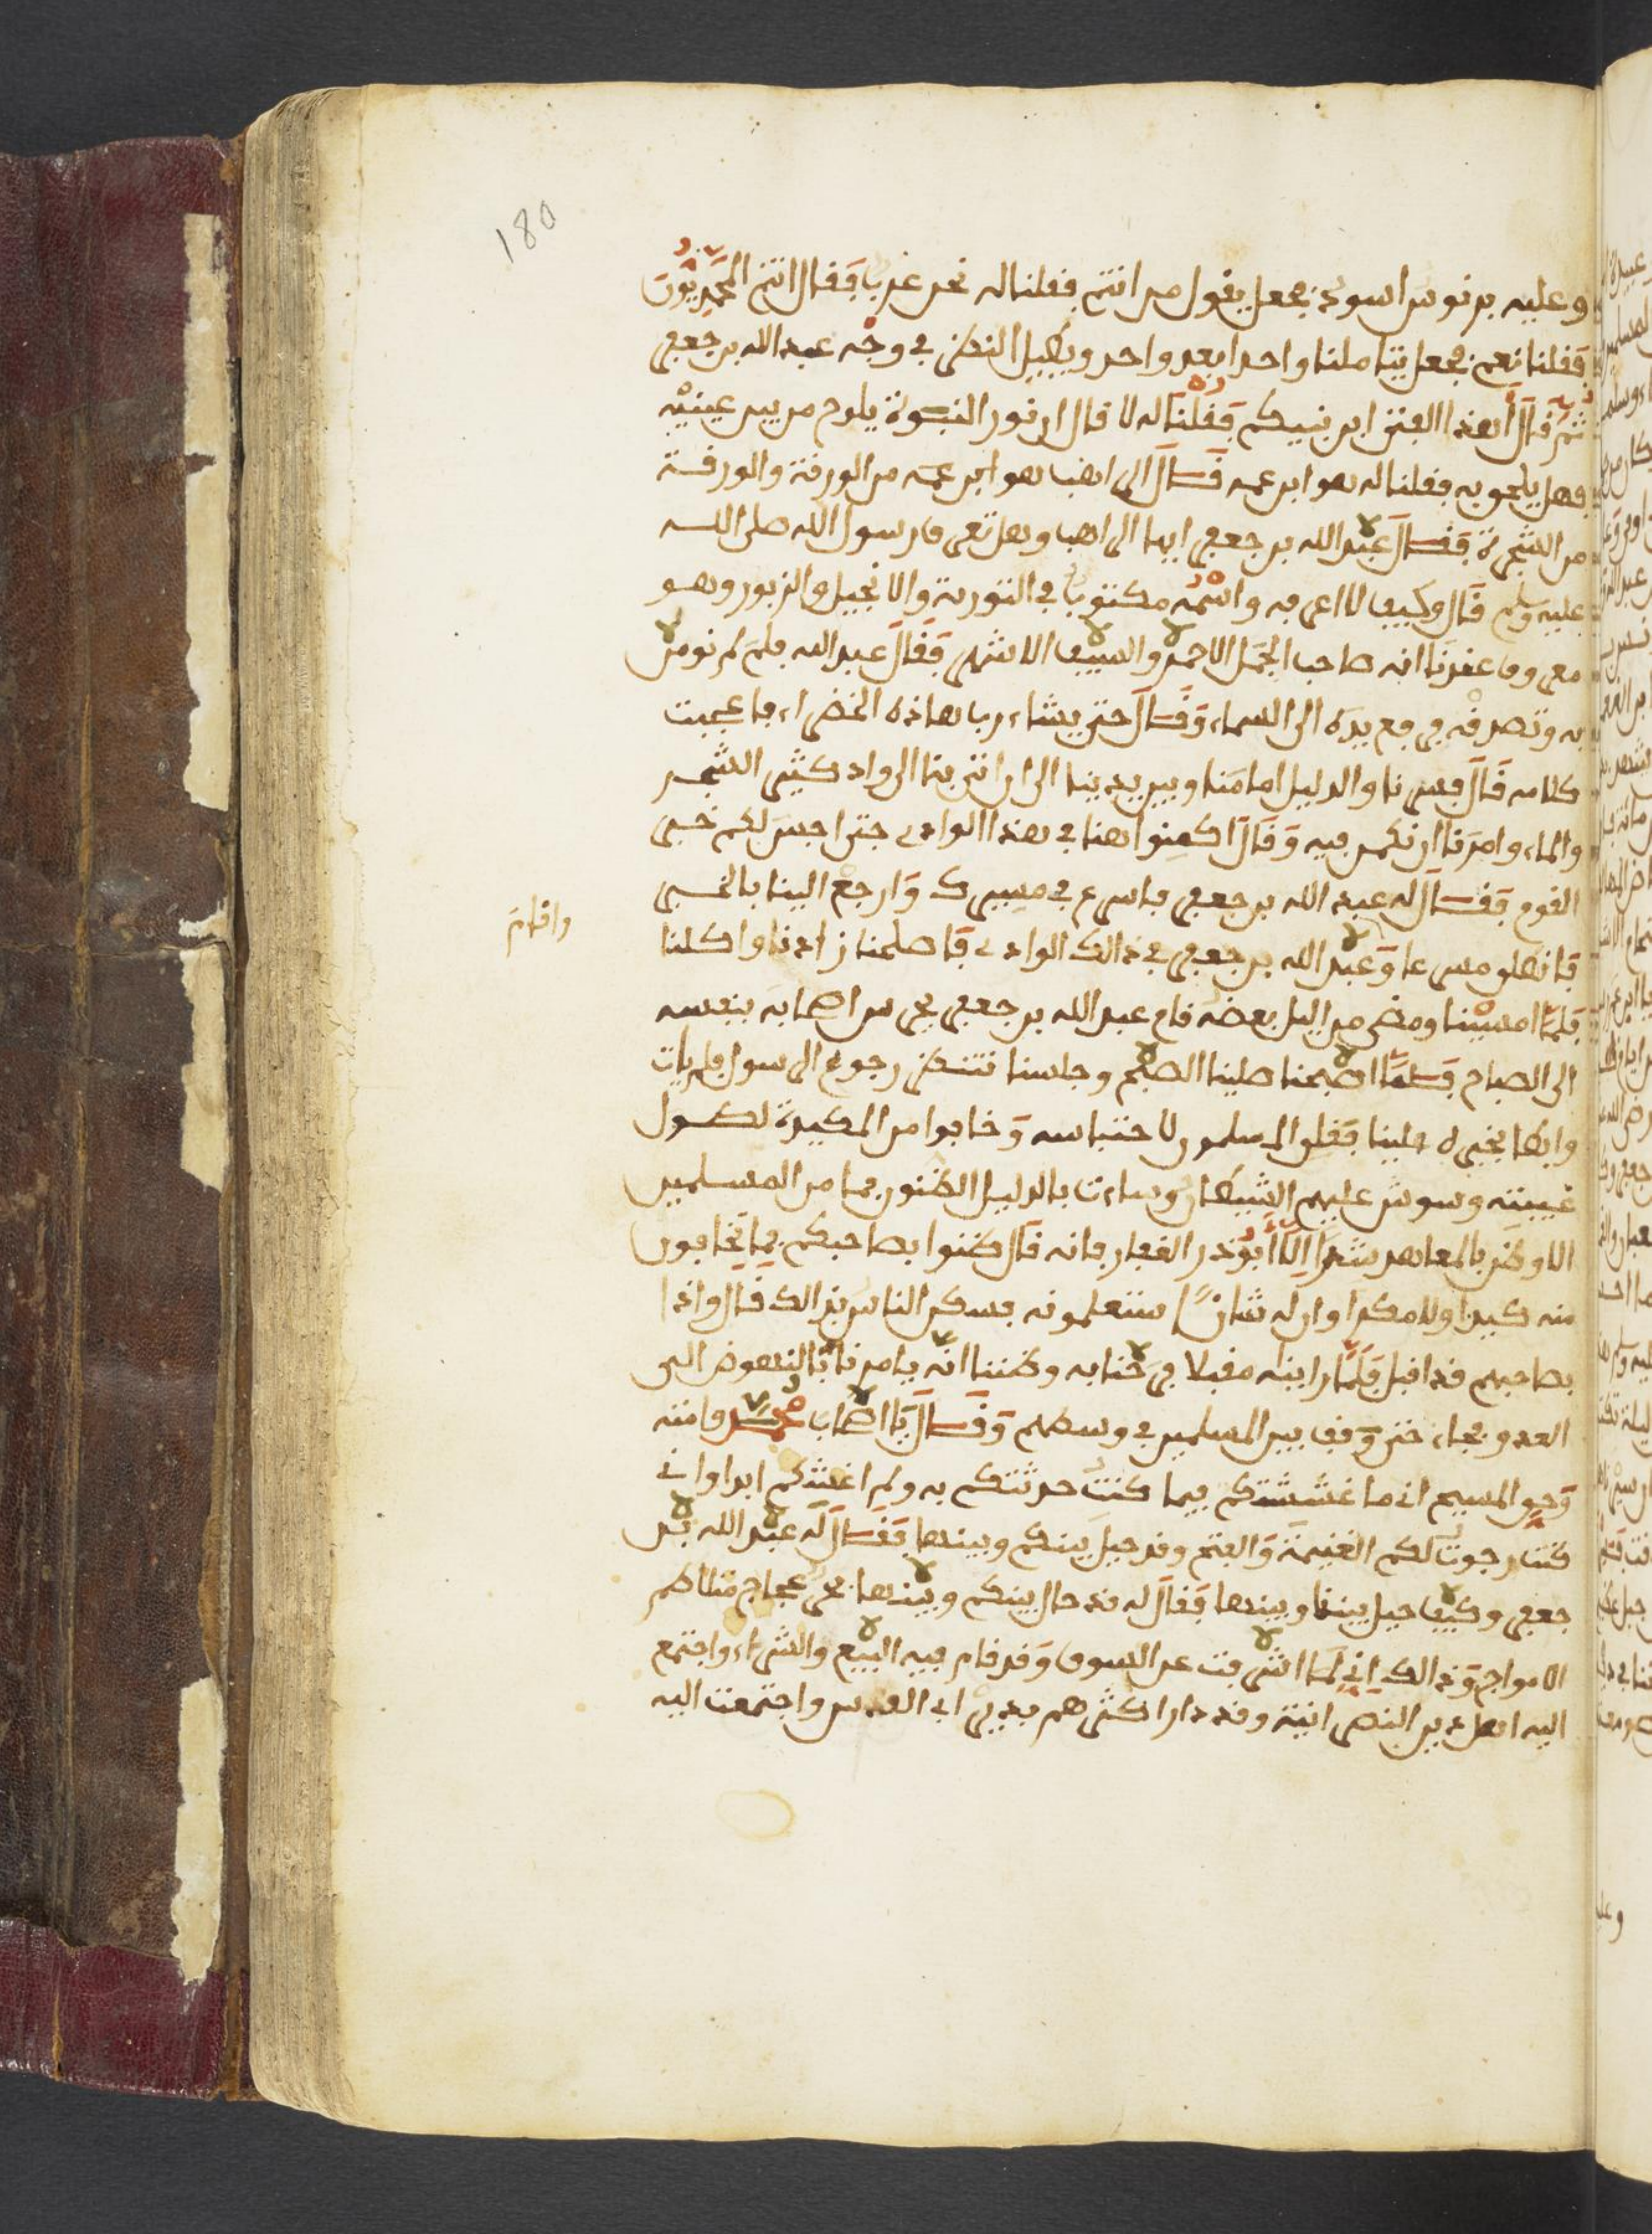 180
وعليه برنوس اسود فجعل يقول من انتم فقلنا له نحن عرب فقال انتم المحمديون
فقلنا نعم فجعل يتاملنا واحدا بعد واحد ويطيل النظر في وجه عبد الله بن جعفر
ثم قال اهذا الفتى ابن نبيكم فقلنا له لا قال ان نور النبوة يلوح من بين عينيه
فهل يلحق به فقلنا له هو ابن عمه فقال الراهب هو ابن عمه من الورقة والورقة
من الشجرة فقال عبد الله بن جعفر ايها الراهب وهل تعرف رسول الله صلى الله
عليه وسلم قال وكيف لا اعرفه واسمه مكتوب في التورية والانجيل والزبور وهو
معروف عندنا انه صاحب الجمل الاحمر والسيف الاشهر فقال عبد الله فلم لم تومن
به وتصدقه فرفع يده الى السماء وقال حتى يشاء رب هاذه الخضراء فاعجبت
كلامه قال فسرنا والدليل امامنا وبين يدينا الى ان اتى بنا الى واد كثير الشجر
والماء وامرنا ان نكمن فيه وقال اكمنوا هنا في هذا الوادي حتى اجس لكم خبر
القوم فقال له عبد الله بن جعفر فاسرع في مسيرك وارجع الينا بالخبر
فانطلق مسرعا وعبد الله بن جعفر في ذالك الوادي فاصلحنا زادنا واكلنا
واقام
فلما امسينا ومضى من اليل بعضه قام عبد الله بن جعفر يحرس اصحابه بنفسه
الى الصباح فلما اصبحنا صلينا الصبح وجلسنا ننتظر رجوع الرسول فلم يات
وابطا بخبره علينا فقلق المسلمون لاحتباسه وخافوا من المكيدة لطول
غيبته ووسوس عليهم الشيطان وساءت بالدليل الظنون فما من المسلمين
الا وظن بالمعاهد شرا الا ابو ذر الغفار فانه قال ظنوا بصاحبكم فما تخافون
منه كيدا ولا مكرا وان له شانا ستعلمونه فسكن الناس بذالك قال واذا
بصاحبهم قد اقبل فلما رايناه مقبلا فرحنا به وظننا انه يامرنا بالنهوض الى
العدو فجاء حتى وقف بين المسلمين في وسطهم وقال يا اصحاب محمد وامته
وحق المسيح اني ما غششتكم فيما كنت حدثتكم به ولم اغشكم ابدا واني
كنت رجوت لكم الغنيمة والفتح وقد حيل بينكم وبينها فقال له عبد الله بن
جعفر وكيف حيل بيننا وبينها فقال له قد حال بينكم وبينها بحر عجاج متلاطم
الامواج وذالك اني لما اشرفت على السوق وقد قام فيه البيع والشراء واجتمع
اليه اهل دين النصرانية وقد دار اكثرهم بدير ابي القدس واجتمعت اليه